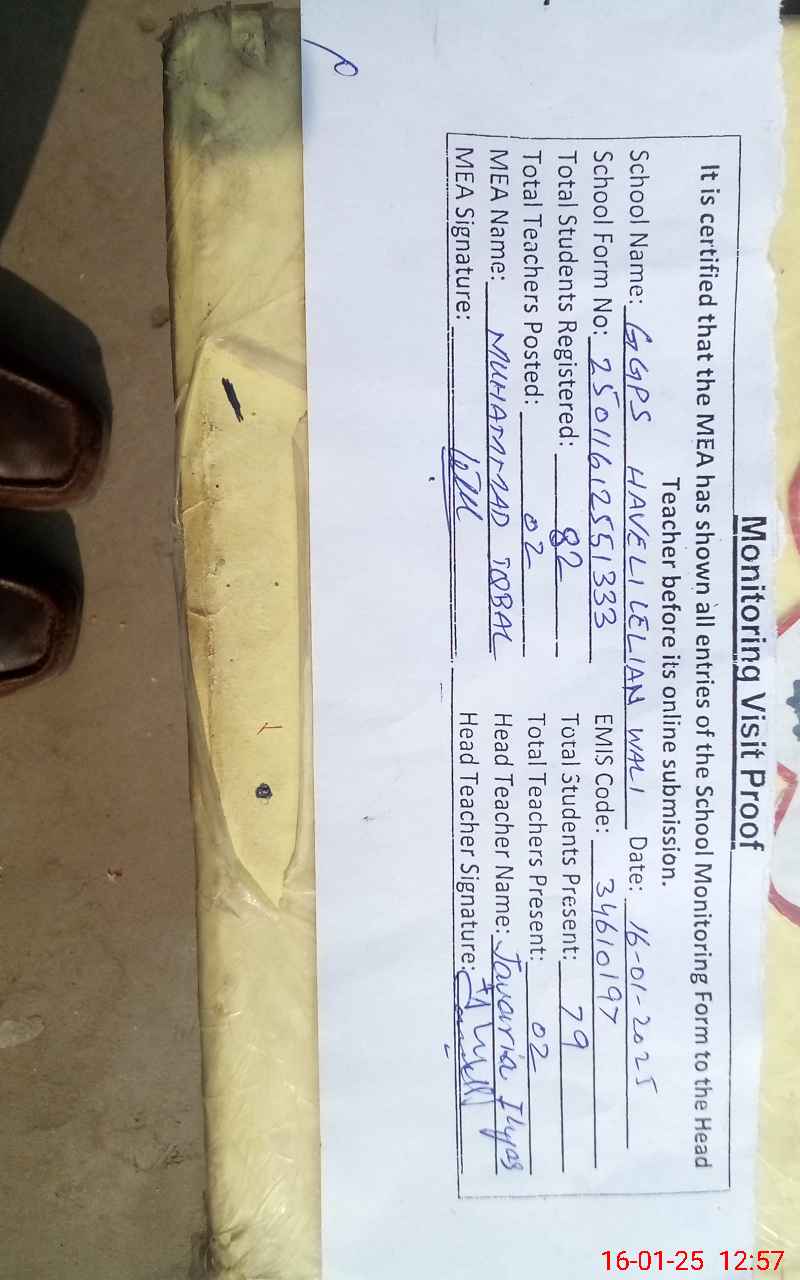 Monitoring Visit Proof
It is certified that the MEA has shown all entries of the School Monitoring Form to the Head
Teacher before its online submission.
School Name: GGPS HAVELI LELIAN WALI Date: 16-01-2025
School Form No: 25011612551333 EMIS Code: 34610197
Total Students Registered: 82 Total Students Present: 79
Total Teachers Posted: 02 Total Teachers Present: 02
MEA Name: MUHAMMAD IQBAL Head Teacher Name: Javaria Ilyas
MEA Signature: Head Teacher Signature:
16-01-25 12:57